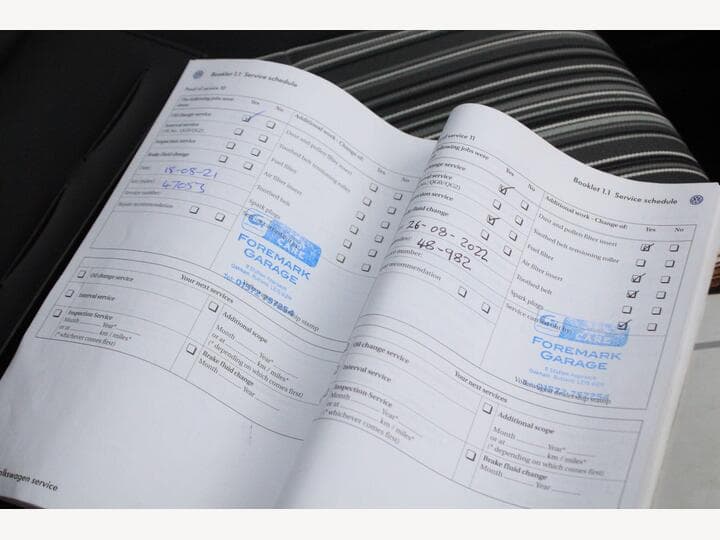 Booklet 1.1 Service schedule
Proof of service 10
The following jobs were
done: Yes No
Oil change service
Interval service
(SC No.: QGB/QG2)
Inspection service
Brake fluid change
Date: 18-08-21
47053
Repair recommendation
Additional work - Change of: Yes No
Dust and pollen filter insert
Toothed belt tensioning roller
Fuel filter
Air filter insert
Toothed belt
Spark plugs
CAR
CARE
FOREMARK
GARAGE
8 Station Approach
Oakham, Rutland, LE15 6QW
Tel: 01572 757254
Your next services
Oil change service
Interval service
Inspection Service
Month Year*
or at km / miles*
(*whichever comes first)
Additional scope
Month Year*
or at km / miles*
(* depending on which comes first)
Brake fluid change
Month Year
Volkswagen service
Booklet 1.1 Service schedule
of service 11
following jobs were
Yes No
change service
service
No.: QGB/QG2)
service
fluid change
26-08-2022
48-982
number:
recommendation
Additional work - Change of: Yes No
Dust and pollen filter insert
Toothed belt tensioning roller
Fuel filter
Air filter insert
Toothed belt
Spark plugs
Service carried out by:
CARE
FOREMARK
GARAGE
8 Station Approach
Oakham, Rutland, LE15 6QW
01572 757254
Volkswagen dealership stamp
Your next services
Oil change service
Interval service
Inspection Service
Month Year*
or at km / miles*
(*whichever comes first)
Additional scope
Month Year*
or at km / miles*
(* depending on which comes first)
Brake fluid change
Month Year